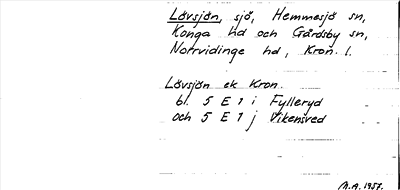 Lövsjön, sjö, Hemmesjö sn,
Konga hd och Gårdsby sn,
Norrvidinge hd, Kron. l.
Lövsjön ek Kron.
bl. 5 E 1 i Fylleryd
och 5 E 1 j Vikensved
M.A. 1957.